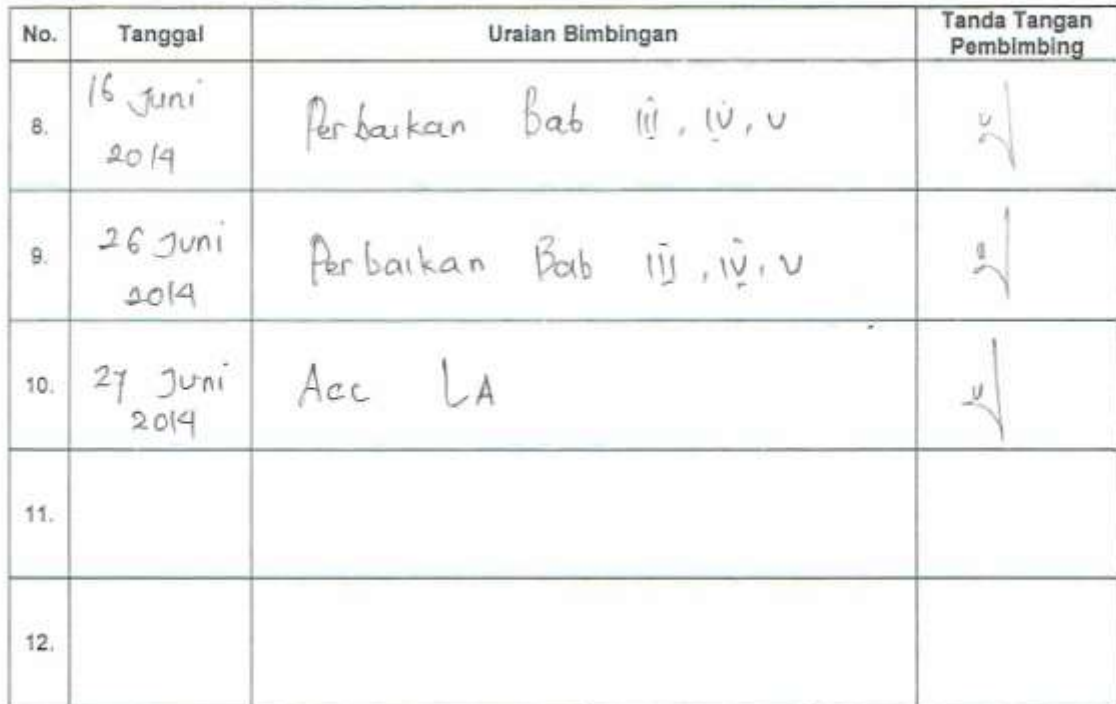 No. Tanggal Uraian Bimbingan Tanda Tangan
Pembimbing
8. 16 Juni Perbaikan Bab III, IV, V
2014
9. 26 Juni Perbaikan Bab III, IV, V
2014
10. 27 Juni Acc LA
2014
11.
12.